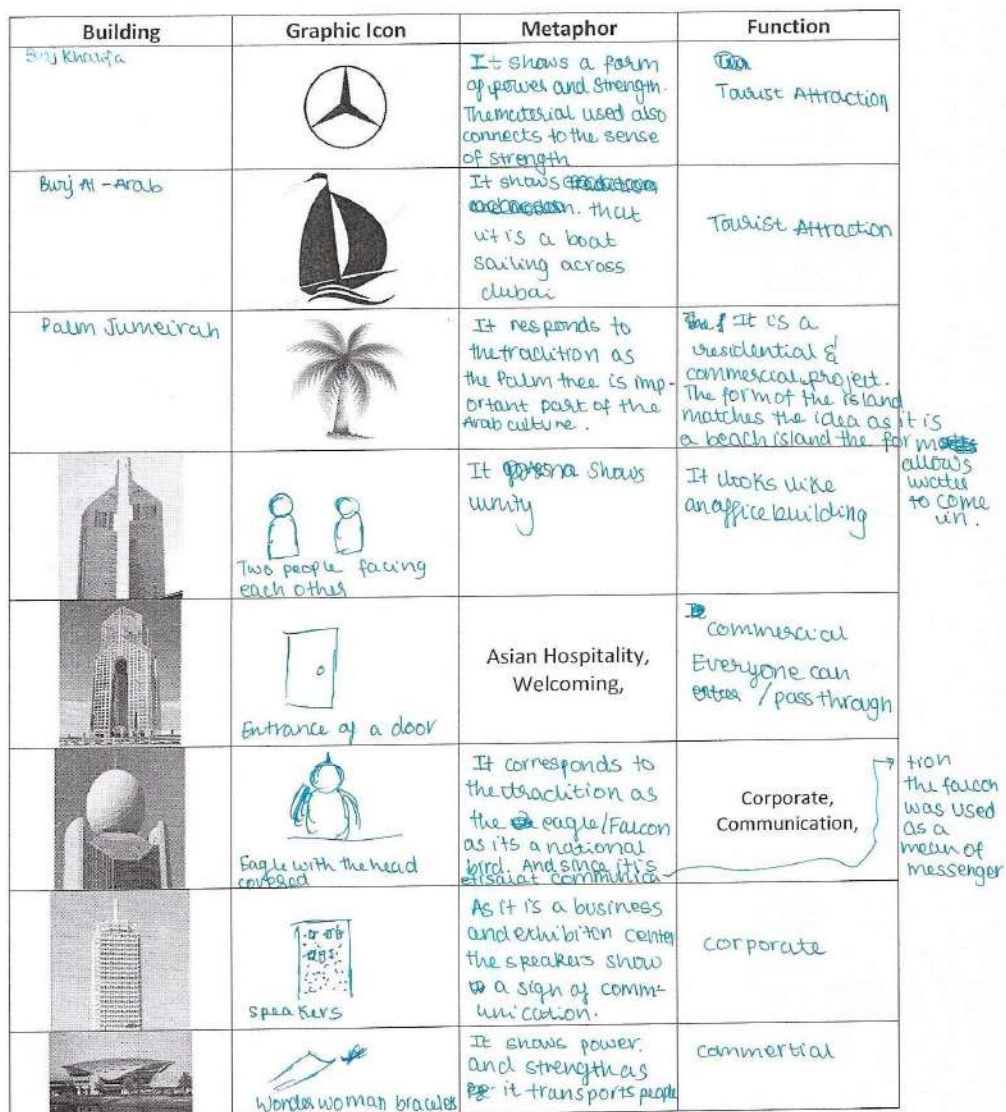 Building
Graphic Icon
Metaphor
Function
Burj Khalifa
It shows a form
of power and strength.
The material used also
connects to the sense
of strength
Tourist Attraction
Burj Al-Arab
It shows
that
it is a boat
sailing across
dubai
Tourist Attraction
Palm Jumeirah
It responds to
the tradition as
the Palm tree is imp-
ortant part of the
Arab culture.
It is a
residential &
commercial project.
The form of the island
matches the idea as it is
a beach island the form
allows
water
to come
in.
Two people facing
each other
It shows
unity
It looks like
an office building
Entrance of a door
Asian Hospitality,
Welcoming,
commercial
Everyone can
/ pass through
Eagle with the head
covered
It corresponds to
the tradition as
the eagle/Falcon
as its a national
bird. And since it is
etisalat communica
tion
the falcon
was used
as a
mean of
messenger
Corporate,
Communication,
speakers
As it is a business
and exhibiton center
the speakers show
a sign of comm-
unication.
corporate
Wonder woman bracelet
It shows power.
and strength as
it transports people
commertial